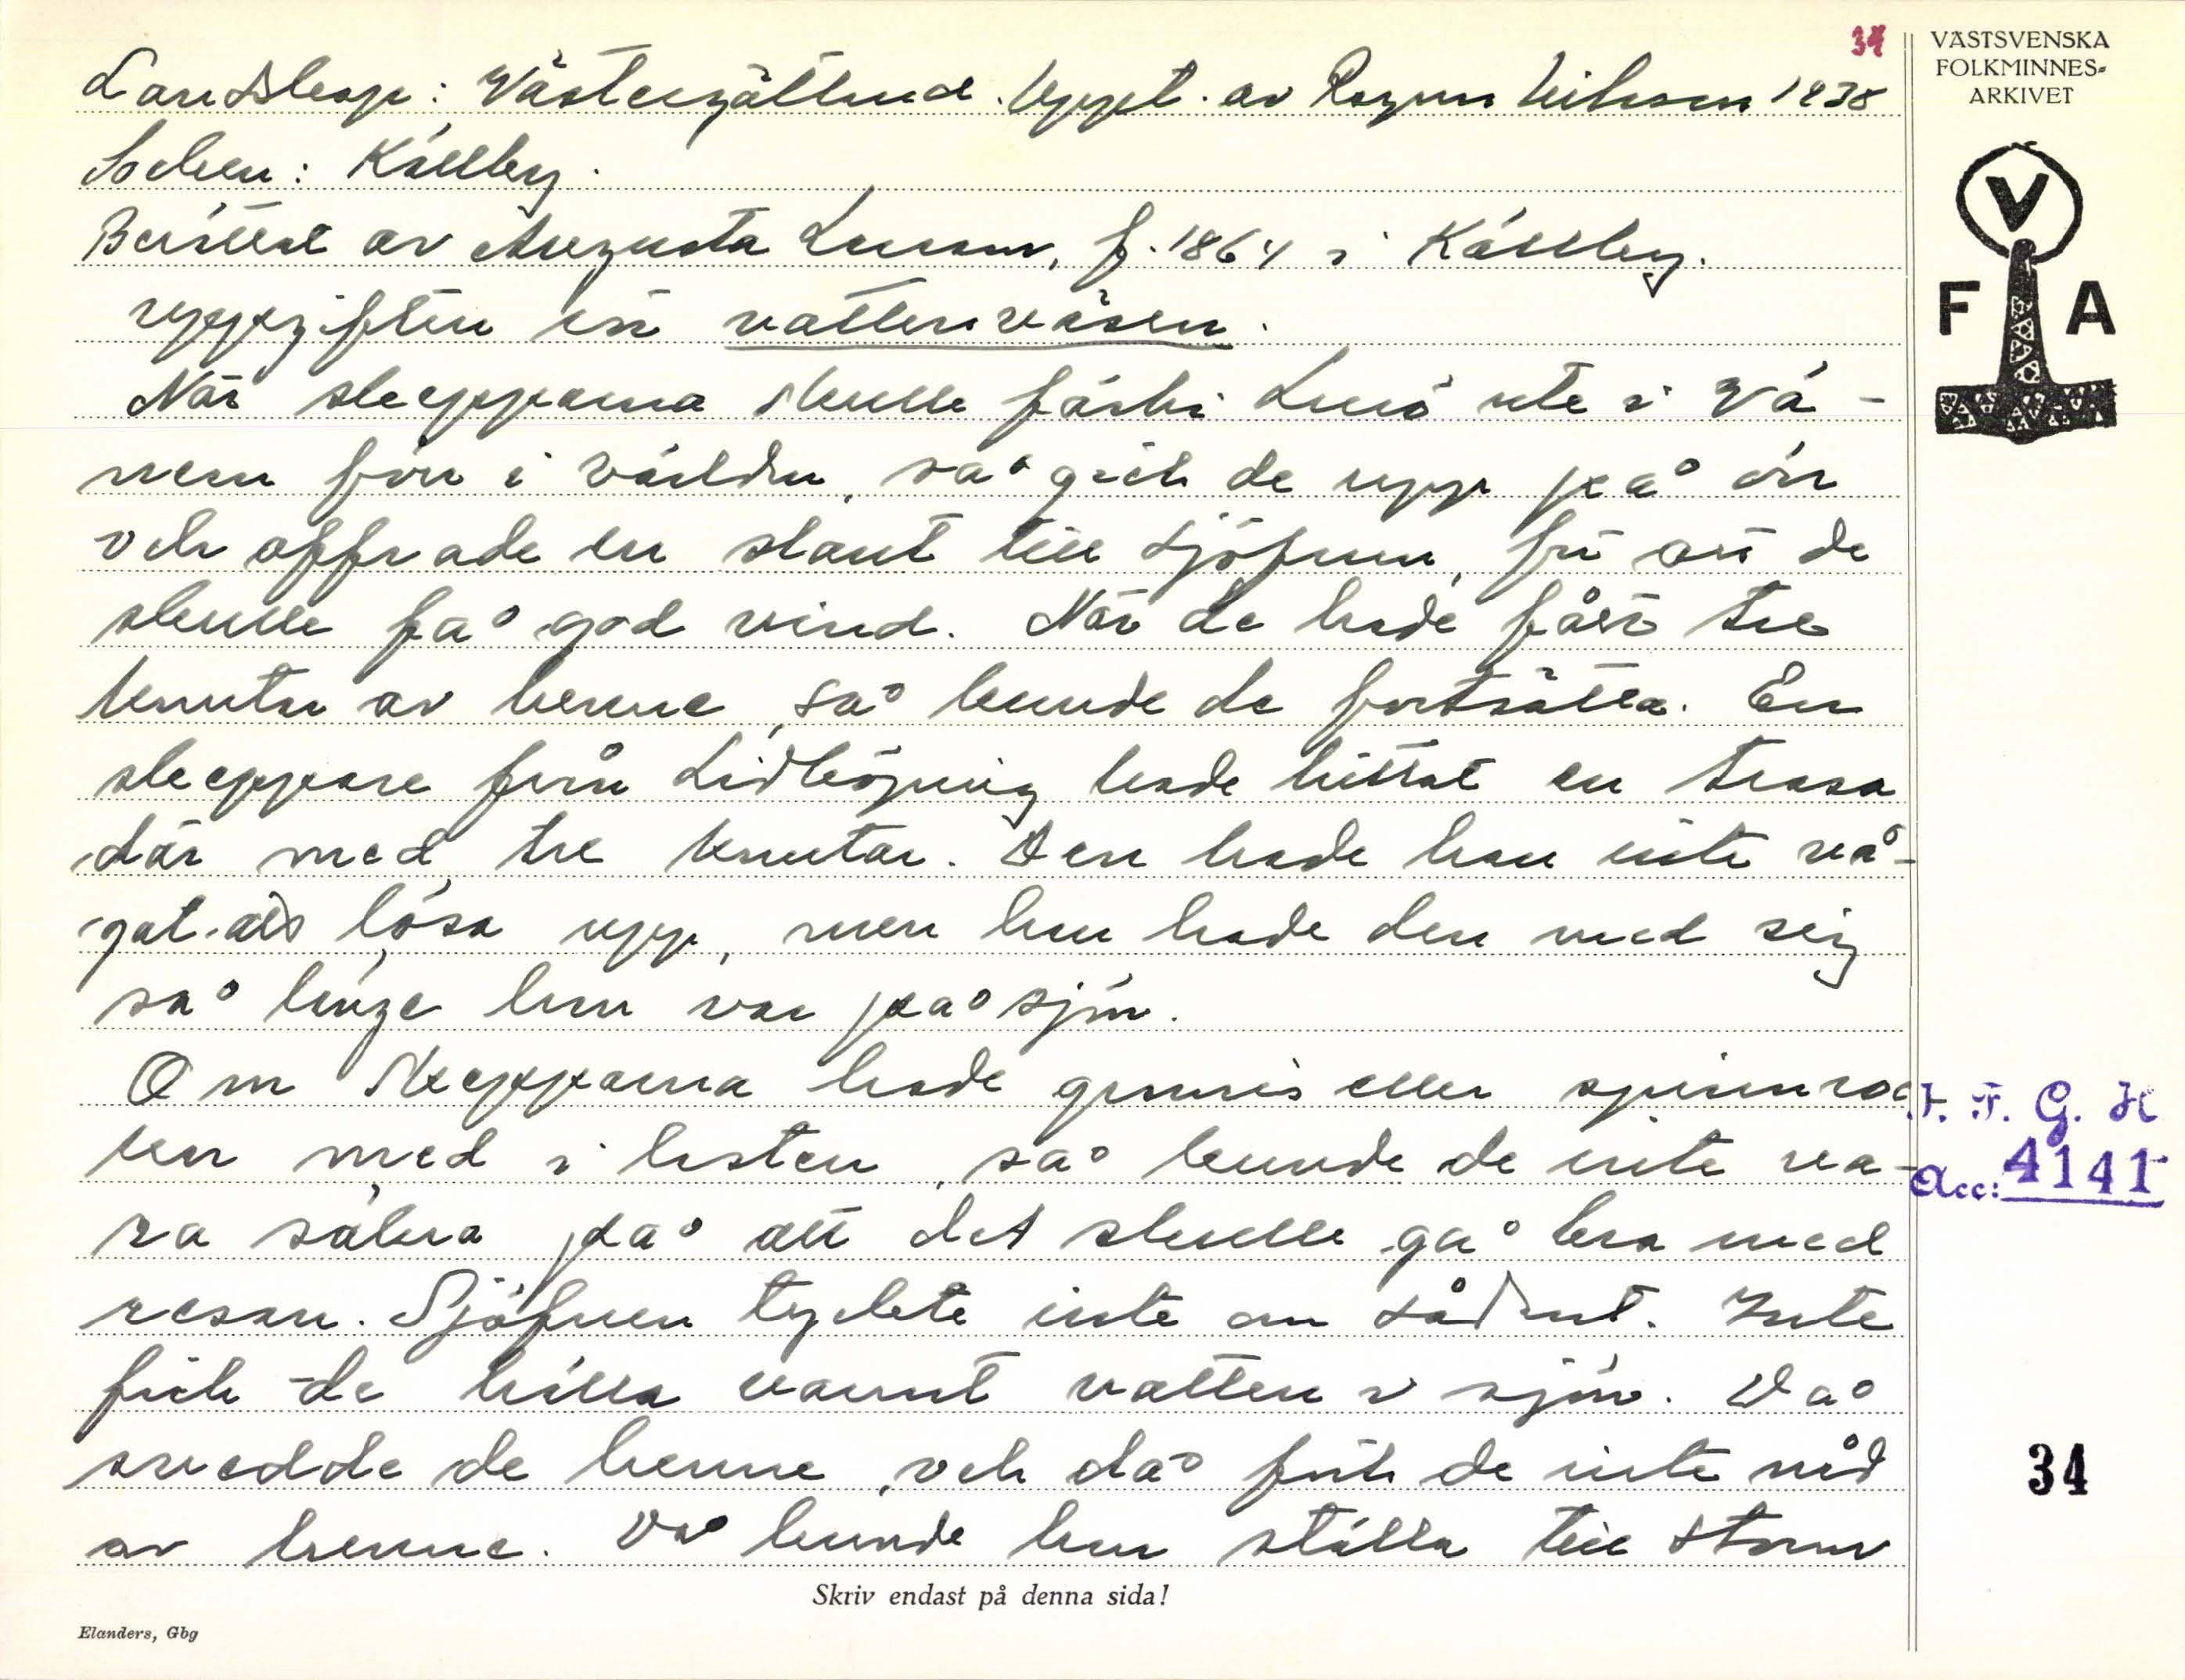 34
VÄSTSVENSKA
FOLKMINNES-
ARKIVET
V
F A
Landskap: Västergötland. Uppt. av Ragnar Nilsson 1938
Socken: Källby.
Berättat av Augusta Larsson, f. 1864 i Källby.
uppgiften en vattenväsen.
När skepparna skulle förbi Lurö ute i Vä-
nern förr i världen, så gick de upp på ön
och offrade en slant till sjöfrun, för att de
skulle få god vind. När de hade fått tre
knutar av henne, så kunde de fortsätta. En
skeppare från Lidköping hade hittat en trasa
där med tre knutar. Den hade han inte vå-
gat att lösa upp, men han hade den med sig
så länge han var på sjön.
Om skepparna hade grannis eller spinnroc
ken med i lasten, så kunde de inte va-
ra säkra på att det skulle gå bra med
resan. Sjöfruen tyckte inte om sådant. Inte
fick de hälla varmt vatten i sjön. Då
skedde de henne, och då fick de inte nåd
av henne. Då kunde hon ställa till storm
I. F. G. H
Acc: 4141
34
Skriv endast på denna sida!
Elanders, Gbg